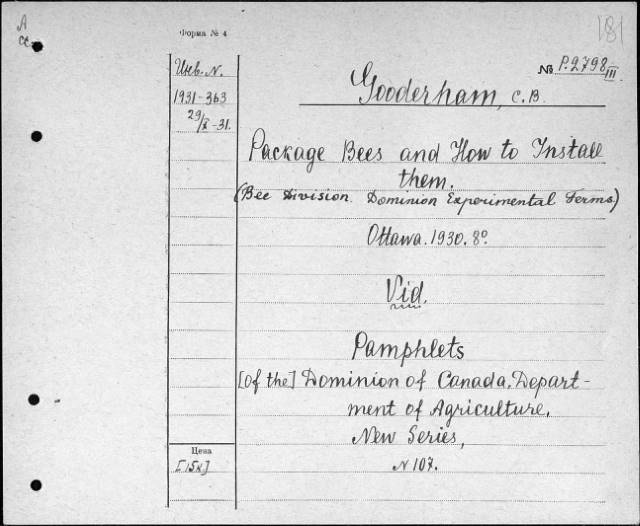 A
Форма № 4
[8]
Инв. N.
№ P.2798
III
1931-363
29/X-31.
Gooderham, C.B.
Package Bees and How to Install
them.
(Bee Division. Dominion Experimental Ferms)
Ottawa. 1930. 8º
Vid.
Pamphlets
[of the] Dominion of Canada. Depart-
ment of Agriculture.
New Series,
N 107.
Цена
[15к]